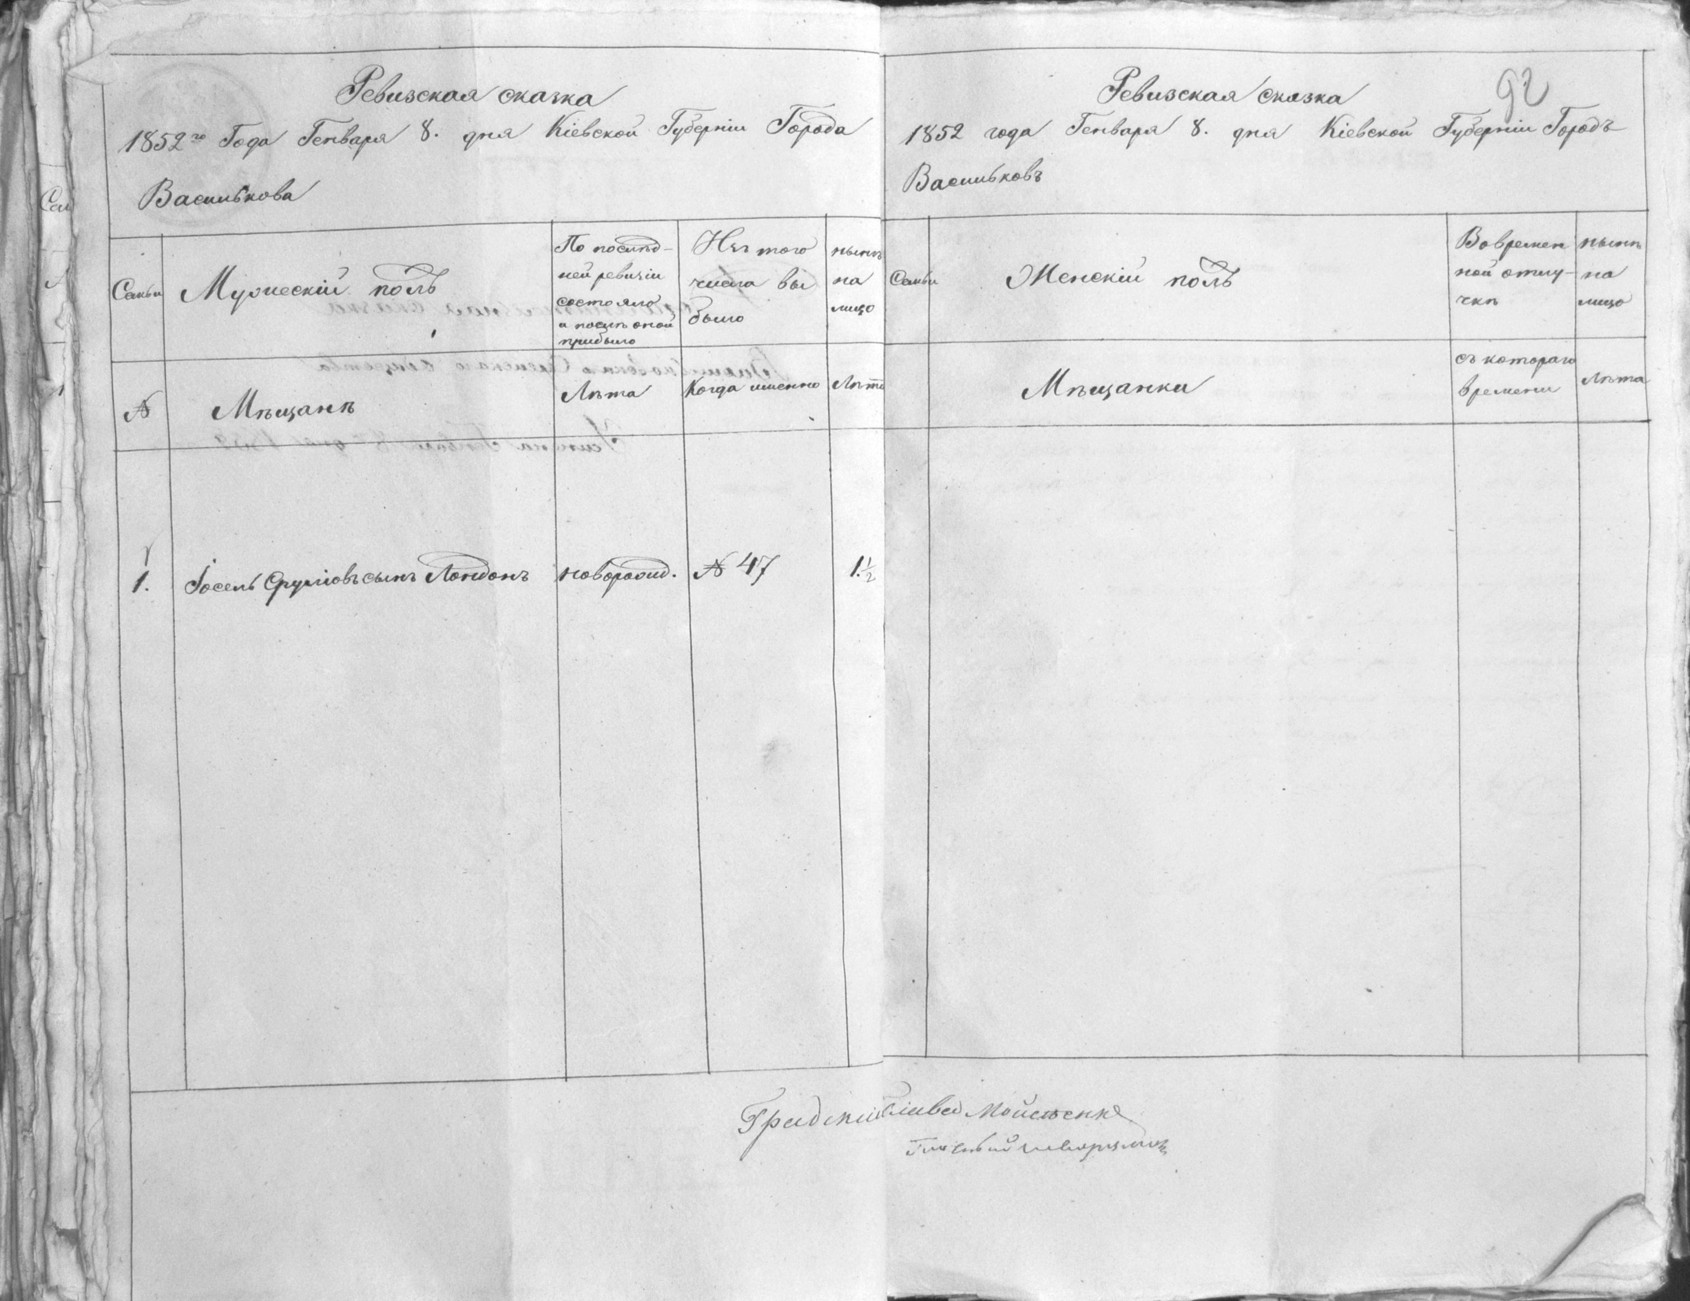 Ревизская сказка
1852го Года Генваря 8. дня Кіевской Губерніи Города
Василькова
Семьи
Мужескій полъ
По послѣд-
ней ревизіи
состояло
и послѣ оной
прибыло
Изъ того
числа вы
было
нынѣ
на
лицо
№
Мѣщанѣ
Лѣта
Когда именно
Лѣта
1.
Іосель Сруліовъ сынъ Лондонъ
новорожд.
№ 47
1 1/2
92
Ревизская сказка
1852 года Генваря 8. дня Кіевской Губерніи Городъ
Васильковъ
Семьи
Женскій полъ
Во времен
ной отлу-
чкѣ
нынѣ
на
лицо
Мѣщанки
съ котораго
времени
Лѣта